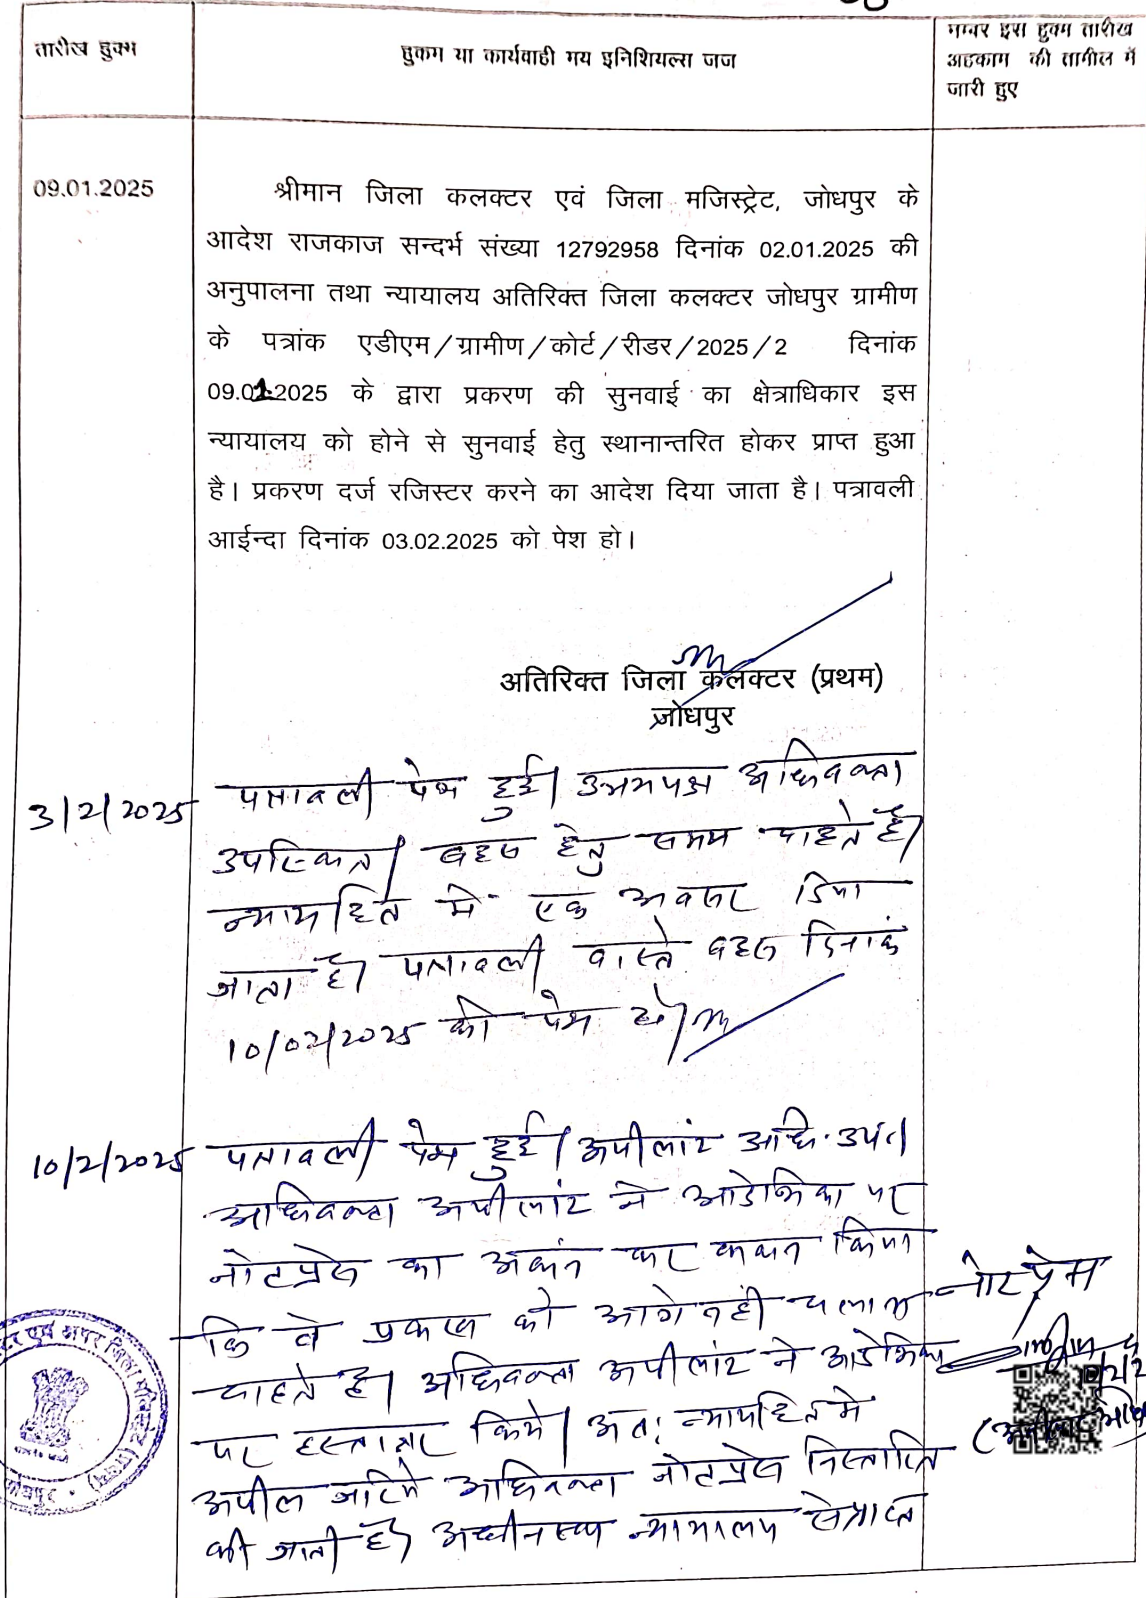 तारीख हुक्म
हुकम या कार्यवाही मय इनिशियल्स जज
नम्बर इस हुक्म तारीख
अहकाम की तामील में
जारी हुए
09.01.2025
श्रीमान जिला कलक्टर एवं जिला मजिस्ट्रेट, जोधपुर के
आदेश राजकाज सन्दर्भ संख्या 12792958 दिनांक 02.01.2025 की
अनुपालना तथा न्यायालय अतिरिक्त जिला कलक्टर जोधपुर ग्रामीण
के पत्रांक एडीएम/ग्रामीण/कोर्ट/रीडर/2025/2 दिनांक
09.01.2025 के द्वारा प्रकरण की सुनवाई का क्षेत्राधिकार इस
न्यायालय को होने से सुनवाई हेतु स्थानान्तरित होकर प्राप्त हुआ
है। प्रकरण दर्ज रजिस्टर करने का आदेश दिया जाता है। पत्रावली
आईन्दा दिनांक 03.02.2025 को पेश हो।
अतिरिक्त जिला कलक्टर (प्रथम)
जोधपुर
3/2/2025 पत्रावली पेश हुई। उभयपक्ष अधिवक्ता
उपस्थित। बहस हेतु समय चाहते है।
न्यायहित में एक अवसर दिया
जाता है। पत्रावली वास्ते बहस दिनांक
10/02/2025 को पेश हो।
10/2/2025 पत्रावली पेश हुई। अपीलांट अधि. उप०।
अधिवक्ता अपीलांट ने आदेशिका पर
नोटप्रेस का अंकन कर कथन किया
कि वे प्रकरण को आगे नहीं चलाना
चाहते है। अधिवक्ता अपीलांट ने आदेशिका
पर हस्ताक्षर किये। अतः न्यायहित में
अपील जरिये अधिवक्ता नोटप्रेस निस्तारित
की जाती है। अधीनस्थ न्यायालय से प्राप्त
नोट प्रेस